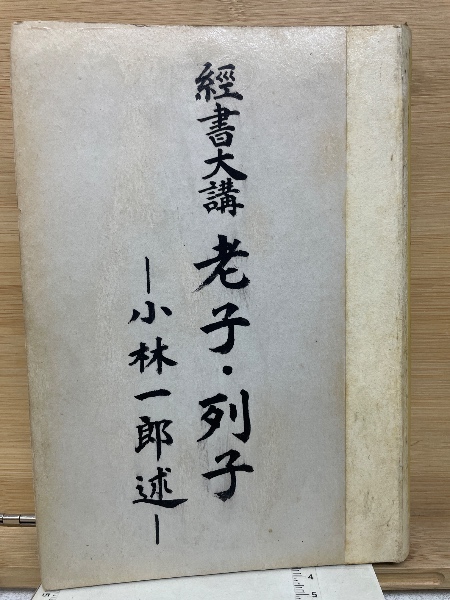 經書大講
老子・列子
―小林一郎述―
4
5